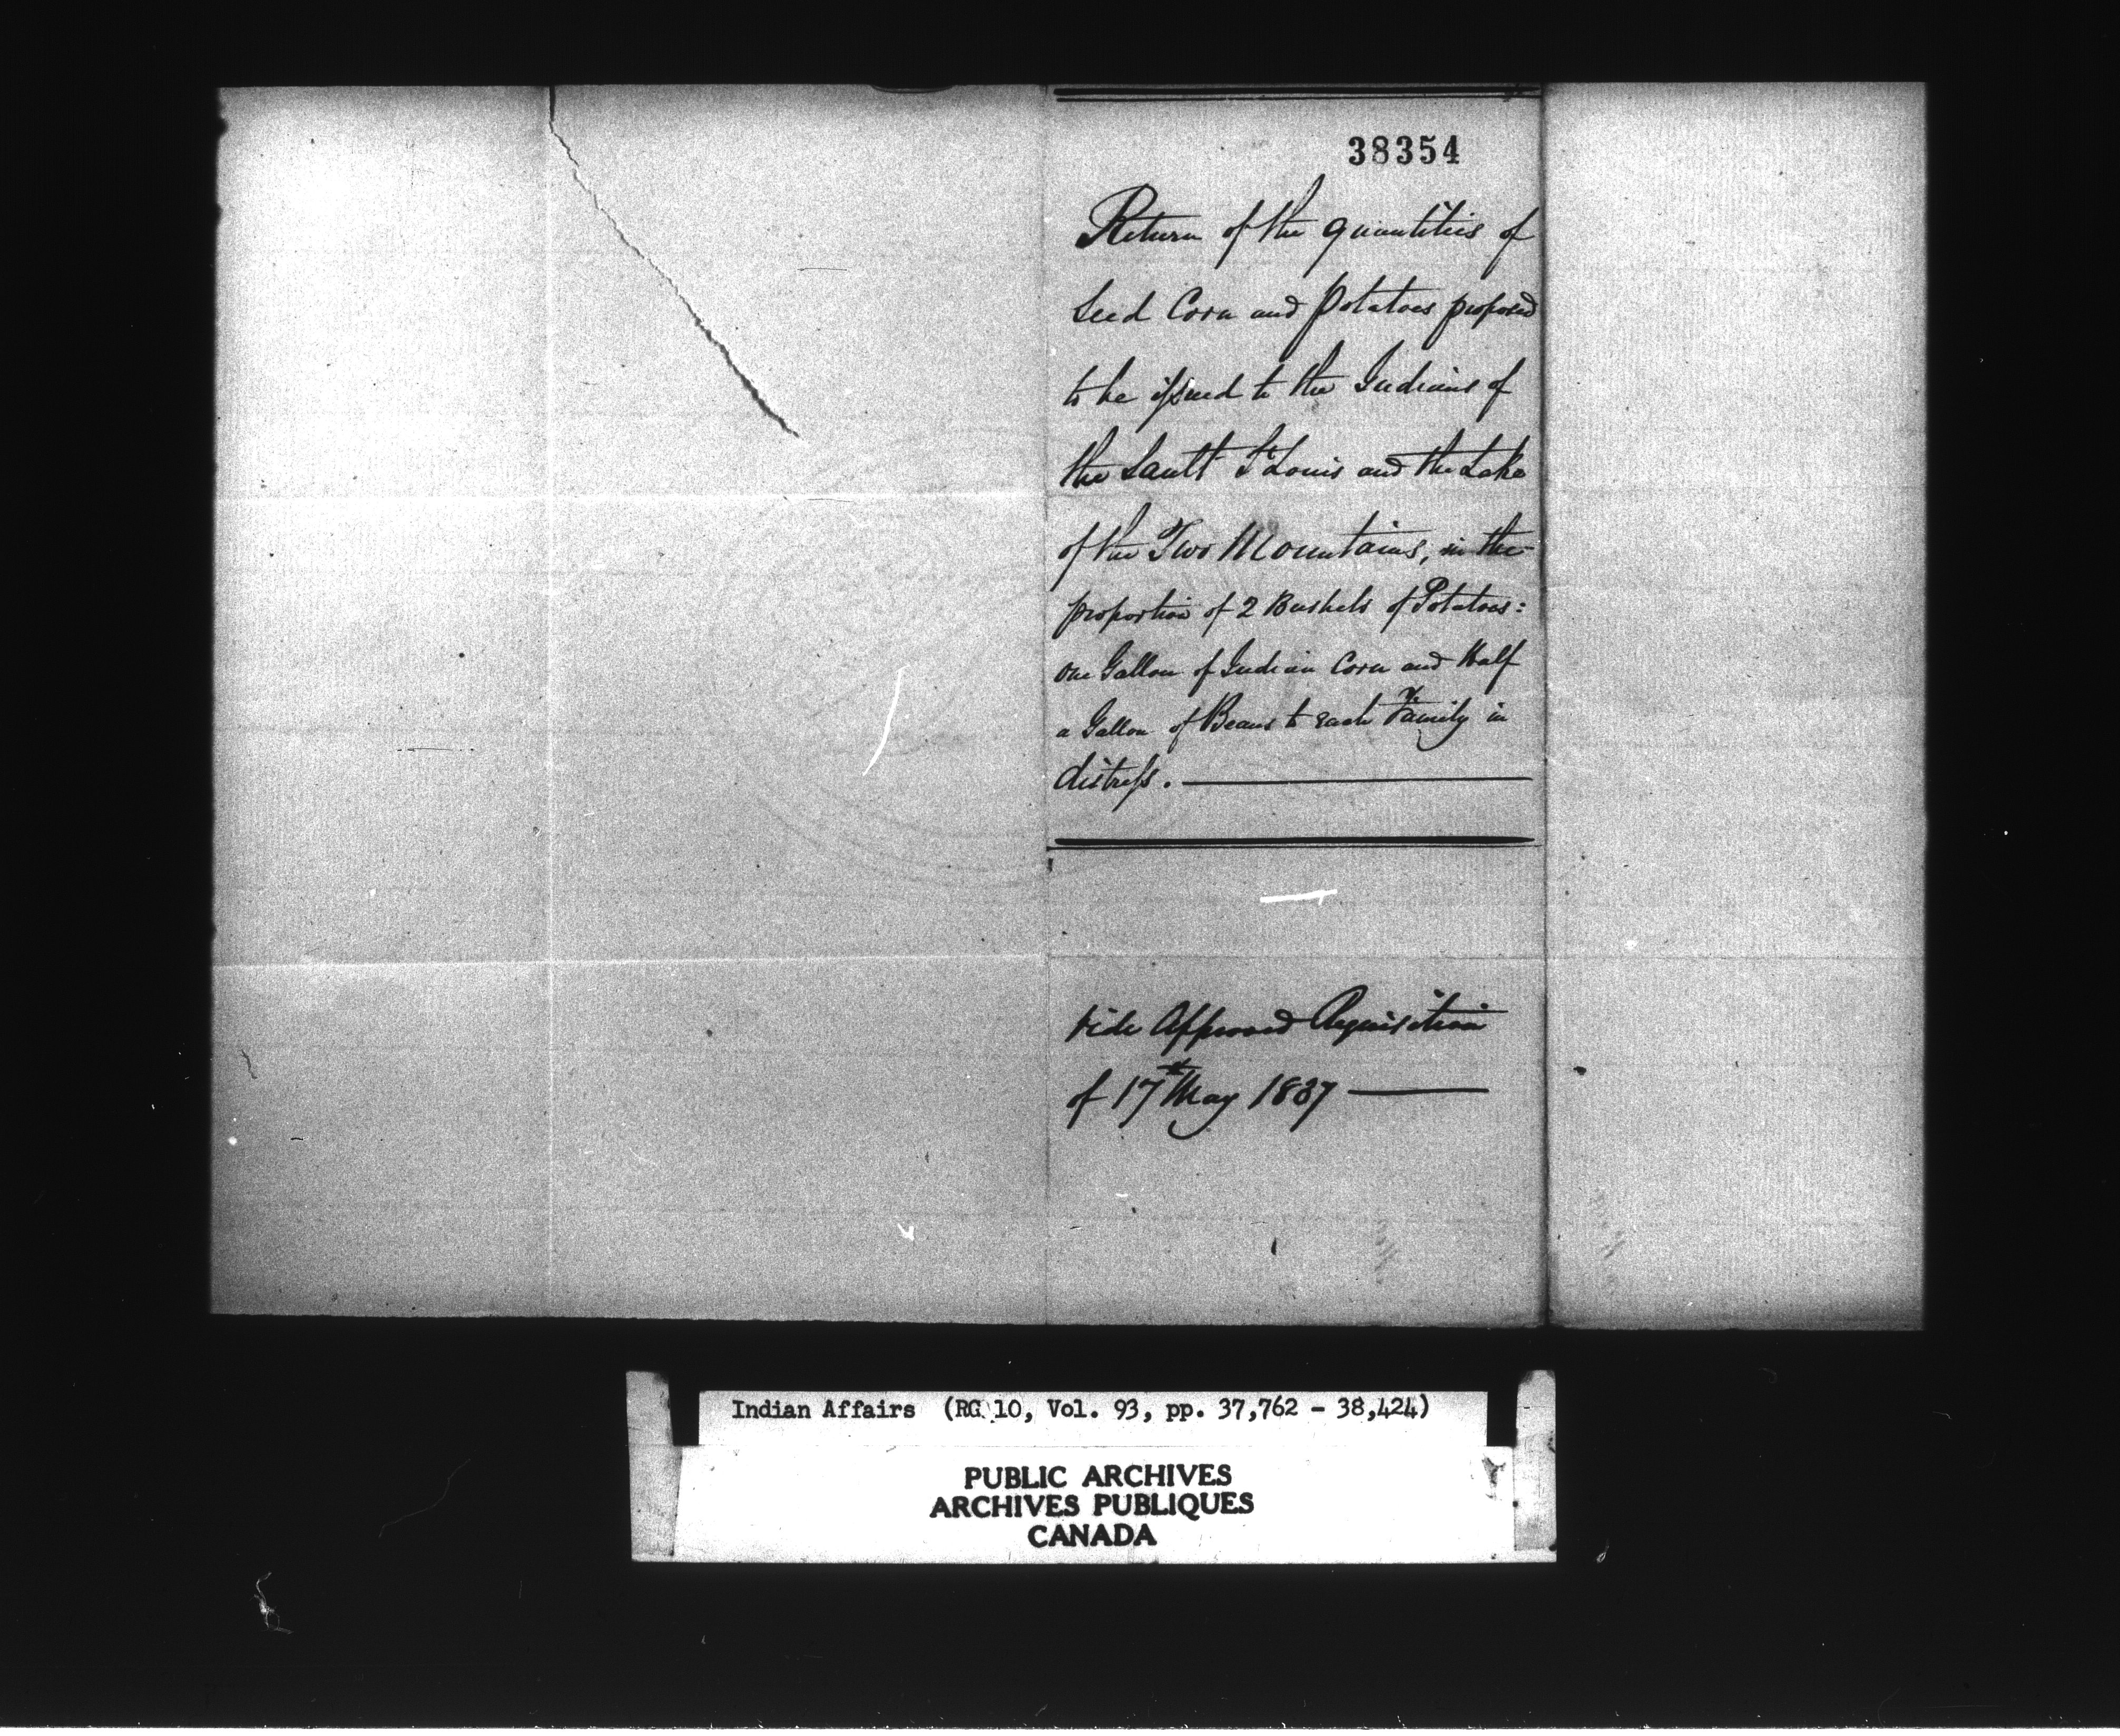 38354
Return of the quantities of
Seed Corn and Potatoes proposed
to be issued to the Indians of
the Sault St Louis and the Lake
of the Two Mountains, in the
proportion of 2 Bushels of Potatoes:
one Gallon of Indian Corn and Half
a Gallon of Beans to each Family in
distress.
Vide Approved Requisition
of 17th May 1837
Indian Affairs (RG 10, Vol. 93, pp. 37,762 - 38,424)
PUBLIC ARCHIVES
ARCHIVES PUBLIQUES
CANADA